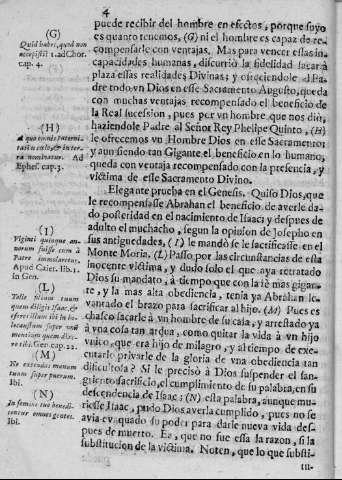 4
puede recibir del hombre en efectos, porque suyo
es quanto tenemos, (G) ni el hombre es capaz de re-
compensarle con ventajas. Mas para vencer essas in-
capacidades humanas, discurriò la fidelidad sacar à
plaza essas realidades Divinas; y ofreciendole al Pa-
dre todo vn Dios en esse Sacramento Augusto, queda
con muchas ventajas recompensado el beneficio de la
Real sucession, pues por vn hombre que nos diò,
haziendole Padre al Señor Rey Phelipe Quinto, (H)
le ofrecemos vn Hombre Dios en esse Sacramento;
y aun siendo tan Gigante el beneficio en lo humano,
queda con ventaja recompensado con la presencia, y
victima de esse Sacramento Divino.
Elegante prueba en el Genesis. Quiso Dios, que
le recompensasse Abrahan el beneficio de averle da-
do posteridad en el nacimiento de Isaac; y despues de
adulto el muchacho, segun la opinion de Josepho en
sus antiguedades, (I) le mandò se le sacrificasse en el
Monte Moria. (L) Passo, por las circunstancias de esta
inocente victima, y dudo solo el que aya retratado
Dios su mandato, à tiempo que con la fè mas gigan-
te, y la mas alta obediencia, tenia ya Abrahan le-
vantado el brazo para sacrificar al hijo. (M) Pues es
chasco sacarle à vn hombre de su casa, y arrestado ya
à vna cosa tan ardua, como quitar la vida à vn hijo
vnico, que era hijo de milagro, y al tiempo de exe-
cutarlo privarle de la gloria de vna obediencia tan
dificultosa? Si le precisò à Dios suspender el san-
griento sacrificio, el cumplimiento de su palabra, en su
descendencia de Isaac; (N) essa palabra, aunque mu-
riesse Isaac, pudo Dios averla cumplido, pues no se
avia evaquado su poder para darle nueva vida des-
pues de muerto. Ea, que no fue essa la razon, si la
substitucion de la victima. Noten, que lo que substi-
tu-
(G)
Quid habes, quod non
accepisti? 1. ad Chor.
cap. 4.
(H)
A quo omnis paterni-
tas in cœlo, & in ter-
ra nominatur. Ad
Ephes. cap. 3.
(I)
Viginti quinque an-
norum fuisse cum à
Patre immolaretur.
Apud Caier. lib. 1.
in Gen.
(L)
Tolle filium tuum
quem diligis Isaac, &
offeres illum ibi in ho-
locaustum super unũ
montium quem dixe-
ro tibi. Gen. cap. 22.
(M)
Ne extendas manum
tuam super puerum.
Ibi.
(N)
In semine tuo benedi-
centur omnes gentes.
Ibi.